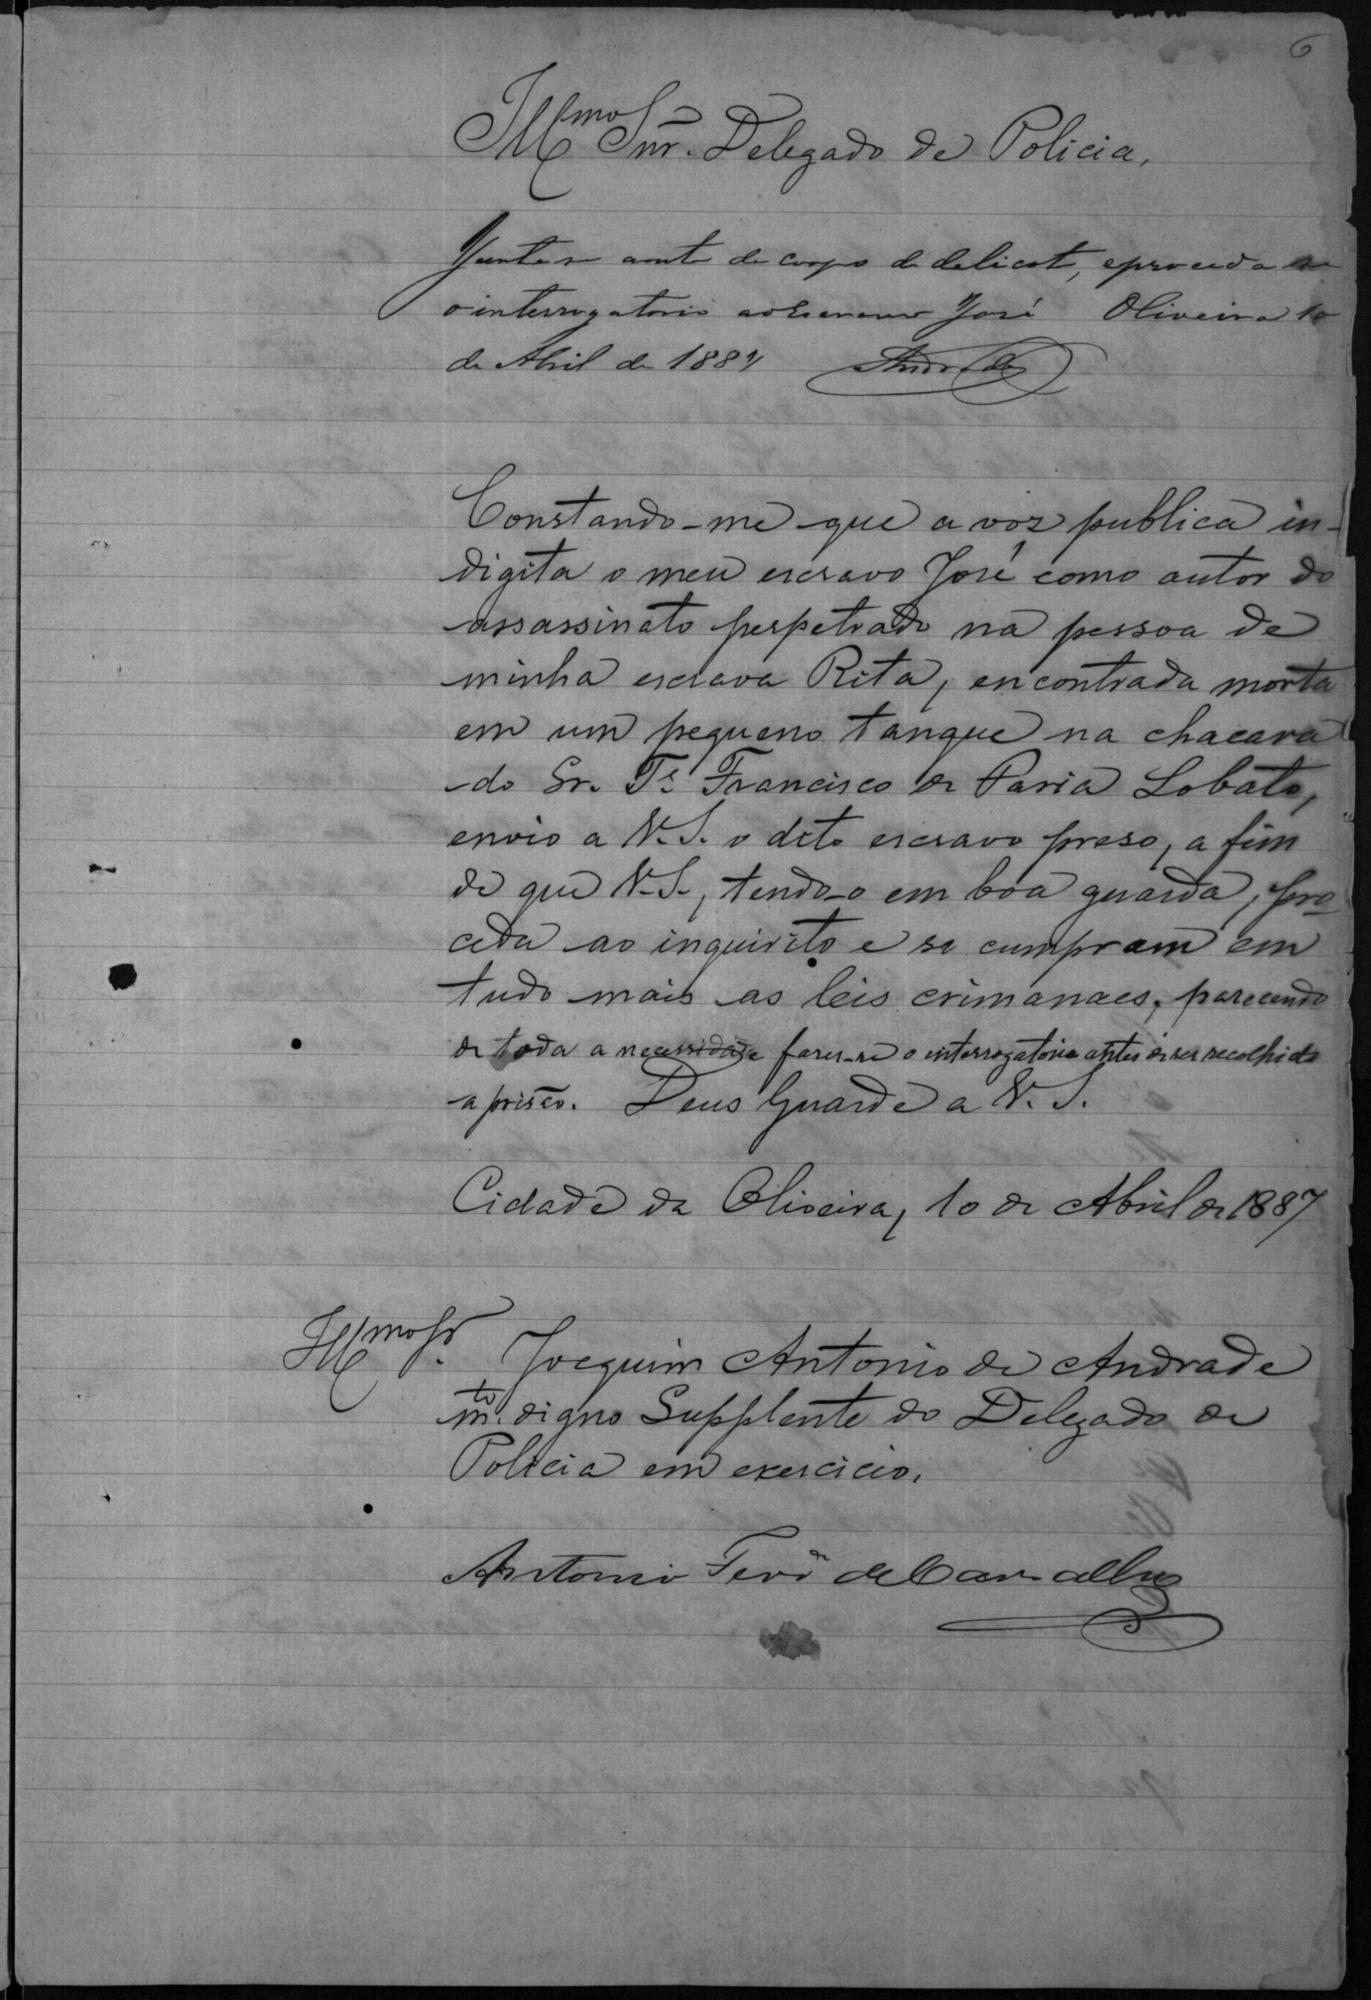 6
Illmo Snr. Delegado de Policia,
Junte-se aouto de corpo de delicto, eproceda se
o interrogatorio aoescravo José Oliveira 10
de Abril de 1887 Andrade
Constando-me que a voz publica in-
digita o meu escravo José como autor do
assassinato perpetrado na pessoa de
minha escrava Rita, encontrada morta
em um pequeno tanque na chacara
do Sr. Te Francisco de Paria Lobato,
envio a V.S. o dito escravo preso, a fim
de que V.S., tendo-o em boa guarda, pro-
ceda ao inquirito e se cumpram em
tudo mais as leis crimanaes, parecendo
de toda a necessidade fazer-se o interrogatorio antes de ser recolhido
a prisão. Deus Guarde a V.S.
Cidade da Oliveira, 10 de Abril de 1887
Illmo Sr. Joaquim Antonio de Andrade
mto digno Supplente do Delegado de
Policia em exercicio.
Antonio Ferra de Carvalho